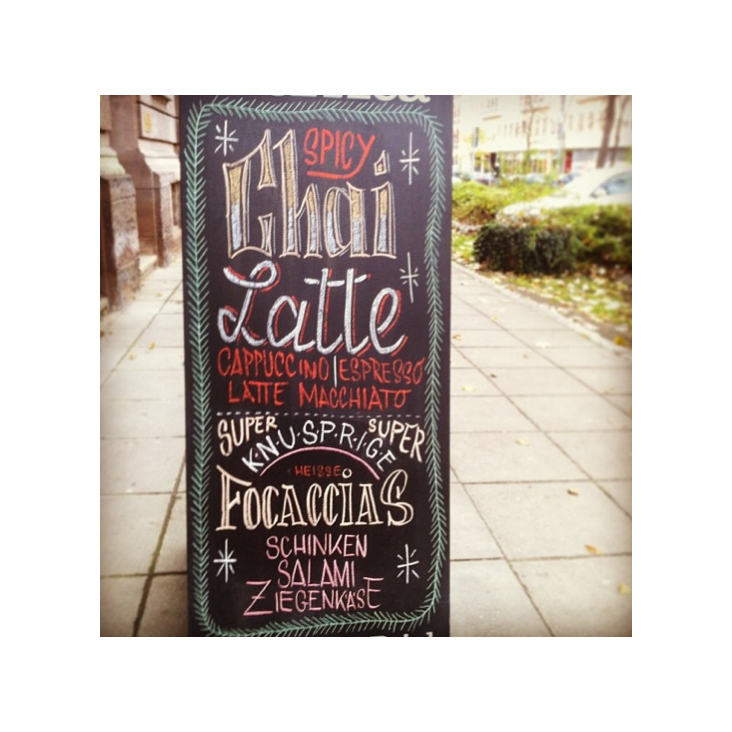 SPICY
Chai
Latte
CAPPUCCINO | ESPRESSO
LATTE MACCHIATO
SUPER SUPER
K·N·U·S·P·R·I·G·E
HEISSE
FOCACCIAS
SCHINKEN
SALAMI
ZIEGENKÄSE